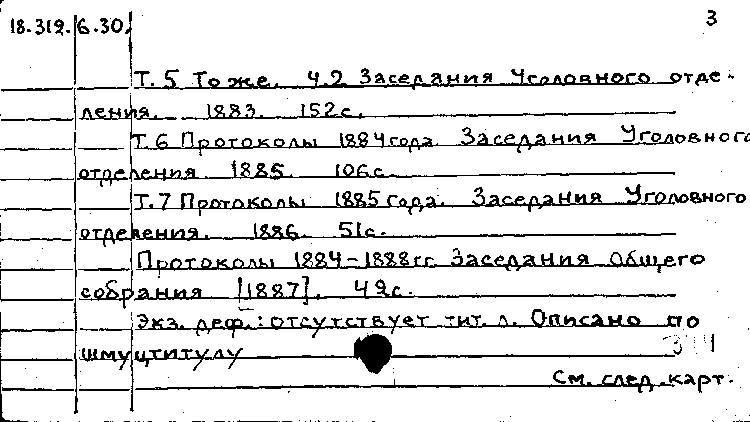 18.319. 6.30. 3
Т.5 То же. Ч.2 Заседания Уголовного отде-
ления. 1883. 152с.
Т.6 Протоколы 1884 года. Заседания Уголовного
отделения 1885. 106с.
Т.7 Протоколы 1885 года. Заседания Уголовного
отделения. 1886. 51с.
Протоколы 1884-1888гг. Заседания Общего
собрания [1887]. 49с.
Экз. деф.: отсутствует тит. л. Описано по
шмуцтитулу
См. след. карт.